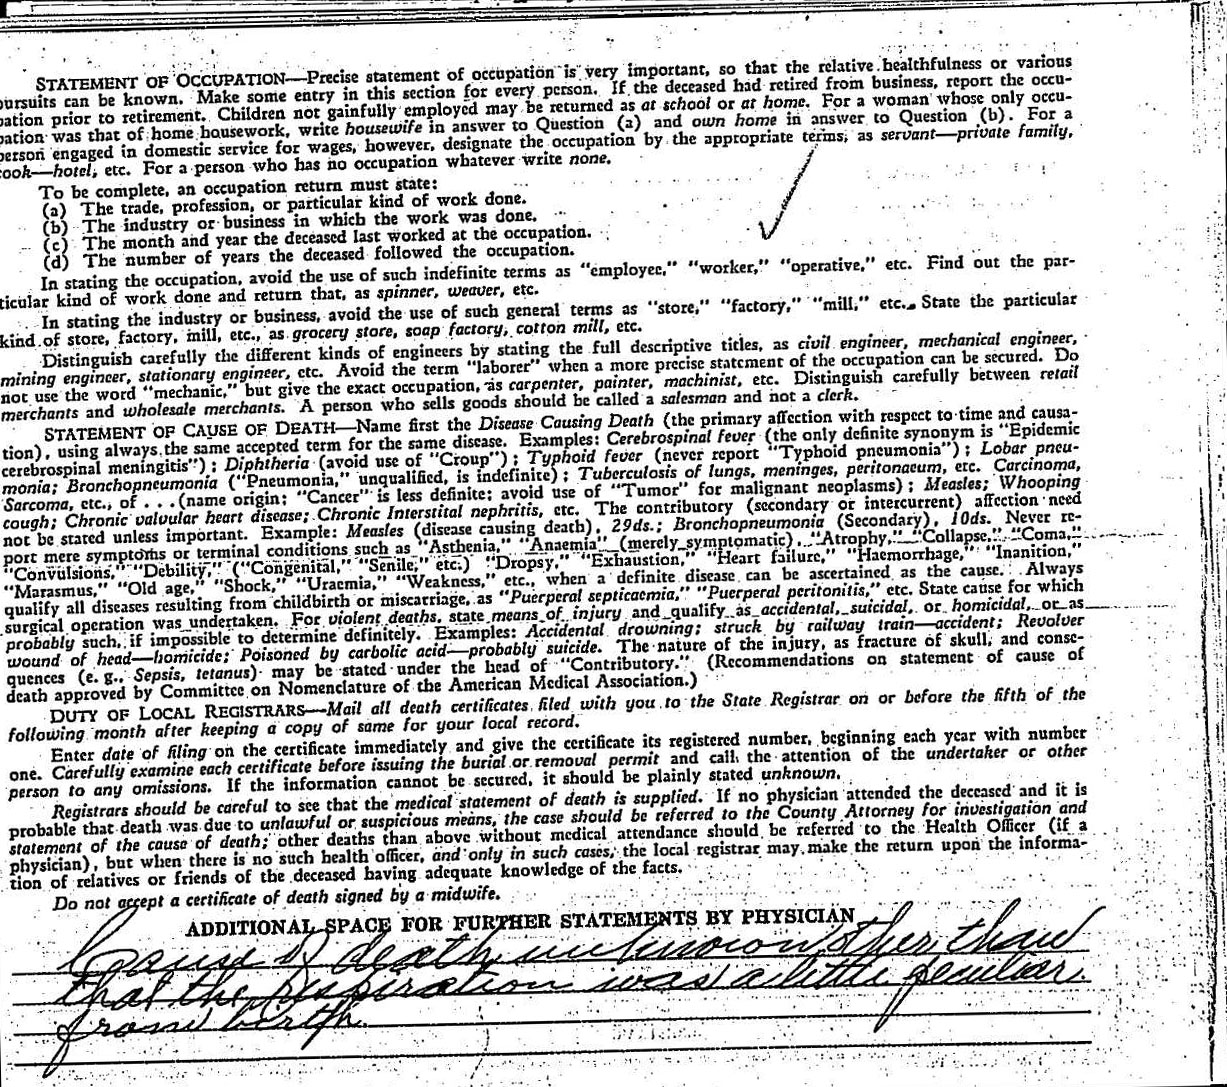 STATEMENT OF OCCUPATION—Precise statement of occupation is very important, so that the relative healthfulness or various
pursuits can be known. Make some entry in this section for every person. If the deceased had retired from business, report the occu-
pation prior to retirement. Children not gainfully employed may be returned as at school or at home. For a woman whose only occu-
pation was that of home housework, write housewife in answer to Question (a) and own home in answer to Question (b). For a
person engaged in domestic service for wages, however, designate the occupation by the appropriate terms, as servant—private family,
cook—hotel, etc. For a person who has no occupation whatever write none.
To be complete, an occupation return must state:
(a) The trade, profession, or particular kind of work done.
(b) The industry or business in which the work was done.
(c) The month and year the deceased last worked at the occupation.
(d) The number of years the deceased followed the occupation.
In stating the occupation, avoid the use of such indefinite terms as "employee," "worker," "operative," etc. Find out the par-
ticular kind of work done and return that, as spinner, weaver, etc.
In stating the industry or business, avoid the use of such general terms as "store," "factory," "mill," etc. State the particular
kind of store, factory, mill, etc., as grocery store, soap factory, cotton mill, etc.
Distinguish carefully the different kinds of engineers by stating the full descriptive titles, as civil engineer, mechanical engineer,
mining engineer, stationary engineer, etc. Avoid the term "laborer" when a more precise statement of the occupation can be secured. Do
not use the word "mechanic," but give the exact occupation, as carpenter, painter, machinist, etc. Distinguish carefully between retail
merchants and wholesale merchants. A person who sells goods should be called a salesman and not a clerk.
STATEMENT OF CAUSE OF DEATH—Name first the Disease Causing Death (the primary affection with respect to time and causa-
tion), using always the same accepted term for the same disease. Examples: Cerebrospinal fever (the only definite synonym is "Epidemic
cerebrospinal meningitis"); Diphtheria (avoid use of "Croup"); Typhoid fever (never report "Typhoid pneumonia"); Lobar pneu-
monia; Bronchopneumonia ("Pneumonia," unqualified, is indefinite); Tuberculosis of lungs, meninges, peritonaeum, etc. Carcinoma,
Sarcoma, etc., of . . . (name origin: "Cancer" is less definite; avoid use of "Tumor" for malignant neoplasms); Measles; Whooping
cough; Chronic valvular heart disease; Chronic Interstital nephritis, etc. The contributory (secondary or intercurrent) affection need
not be stated unless important. Example: Measles (disease causing death), 29ds.; Bronchopneumonia (Secondary), 10ds. Never re-
port mere symptoms or terminal conditions such as "Asthenia," "Anaemia" (merely symptomatic). "Atrophy," "Collapse," "Coma,"
"Convulsions," "Debility," ("Congenital," "Senile," etc.) "Dropsy," "Exhaustion," "Heart failure," "Haemorrhage," "Inanition,"
"Marasmus," "Old age," "Shock," "Uraemia," "Weakness," etc., when a definite disease can be ascertained as the cause. Always
qualify all diseases resulting from childbirth or miscarriage, as "Puerperal septicaemia," "Puerperal peritonitis," etc. State cause for which
surgical operation was undertaken. For violent deaths, state means of injury and qualify as accidental, suicidal, or homicidal, or as
probably such, if impossible to determine definitely. Examples: Accidental drowning; struck by railway train—accident; Revolver
wound of head—homicide; Poisoned by carbolic acid—probably suicide. The nature of the injury, as fracture of skull, and conse-
quences (e. g., Sepsis, tetanus) may be stated under the head of "Contributory." (Recommendations on statement of cause of
death approved by Committee on Nomenclature of the American Medical Association.)
DUTY OF LOCAL REGISTRARS—Mail all death certificates filed with you to the State Registrar on or before the fifth of the
following month after keeping a copy of same for your local record.
Enter date of filing on the certificate immediately and give the certificate its registered number, beginning each year with number
one. Carefully examine each certificate before issuing the burial or removal permit and call the attention of the undertaker or other
person to any omissions. If the information cannot be secured, it should be plainly stated unknown.
Registrars should be careful to see that the medical statement of death is supplied. If no physician attended the deceased and it is
probable that death was due to unlawful or suspicious means, the case should be referred to the County Attorney for investigation and
statement of the cause of death; other deaths than above without medical attendance should be referred to the Health Officer (if a
physician), but when there is no such health officer, and only in such cases, the local registrar may make the return upon the informa-
tion of relatives or friends of the deceased having adequate knowledge of the facts.
Do not accept a certificate of death signed by a midwife.
ADDITIONAL SPACE FOR FURTHER STATEMENTS BY PHYSICIAN
Cause of death unknown other than
that the respiration was a little peculiar
from birth.